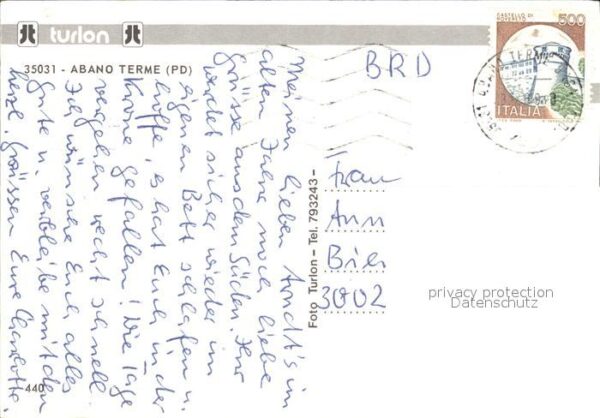 turlon
35031 - ABANO TERME (PD)
BRD
CASTELLO DI
ROVERETO
500
ITALIA
Meinen lieben Arndt's im
alten Jahre noch liebe
Grüsse aus dem Süden. Ihr
werdet sicher wieder im
eigenen Bett schlafen u.
hoffe, es hat Euch in der
Kur gefallen! Die Tage
vergehen recht schnell
Ich wünsche Euch alles
Gute u. verbleibe mit den
herz. Grüssen Eure Charlotte
Foto Turlon - Tel. 793243 -
Frau
Ann
Bier
3002
privacy protection
Datenschutz
440